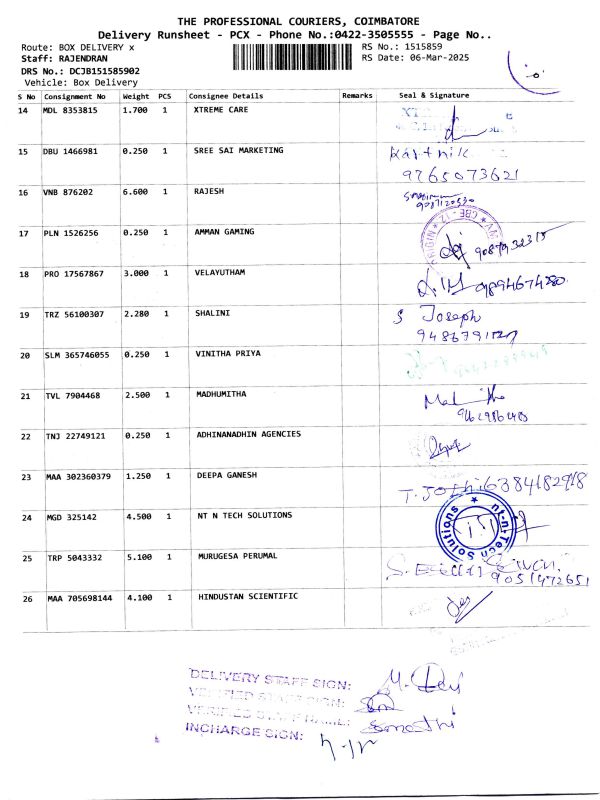 THE PROFESSIONAL COURIERS, COIMBATORE
Delivery Runsheet - PCX - Phone No.:0422-3505555 - Page No..
Route: BOX DELIVERY x RS No.: 1515859
Staff: RAJENDRAN RS Date: 06-Mar-2025
DRS No.: DCJB151585902
Vehicle: Box Delivery
S No Consignment No Weight PCS Consignee Details Remarks Seal & Signature
14 MDL 8353815 1.700 1 XTREME CARE
15 DBU 1466981 0.250 1 SREE SAI MARKETING Karthik
9765073621
16 VNB 876202 6.600 1 RAJESH
17 PLN 1526256 0.250 1 AMMAN GAMING
18 PRO 17567867 3.000 1 VELAYUTHAM 9894674280
19 TRZ 56100307 2.280 1 SHALINI S Joseph
20 SLM 365746055 0.250 1 VINITHA PRIYA
21 TVL 7904468 2.500 1 MADHUMITHA
22 TNJ 22749121 0.250 1 ADHINANADHIN AGENCIES
23 MAA 302360379 1.250 1 DEEPA GANESH T. Jothi 6384182918
24 MGD 325142 4.500 1 NT N TECH SOLUTIONS nt-n-Tech Solutions
25 TRP 5043332 5.100 1 MURUGESA PERUMAL
9051472651
26 MAA 705698144 4.100 1 HINDUSTAN SCIENTIFIC
DELIVERY STAFF SIGN:
VERIFIED STAFF SIGN:
VERIFIED STAFF NAME:
INCHARGE SIGN: